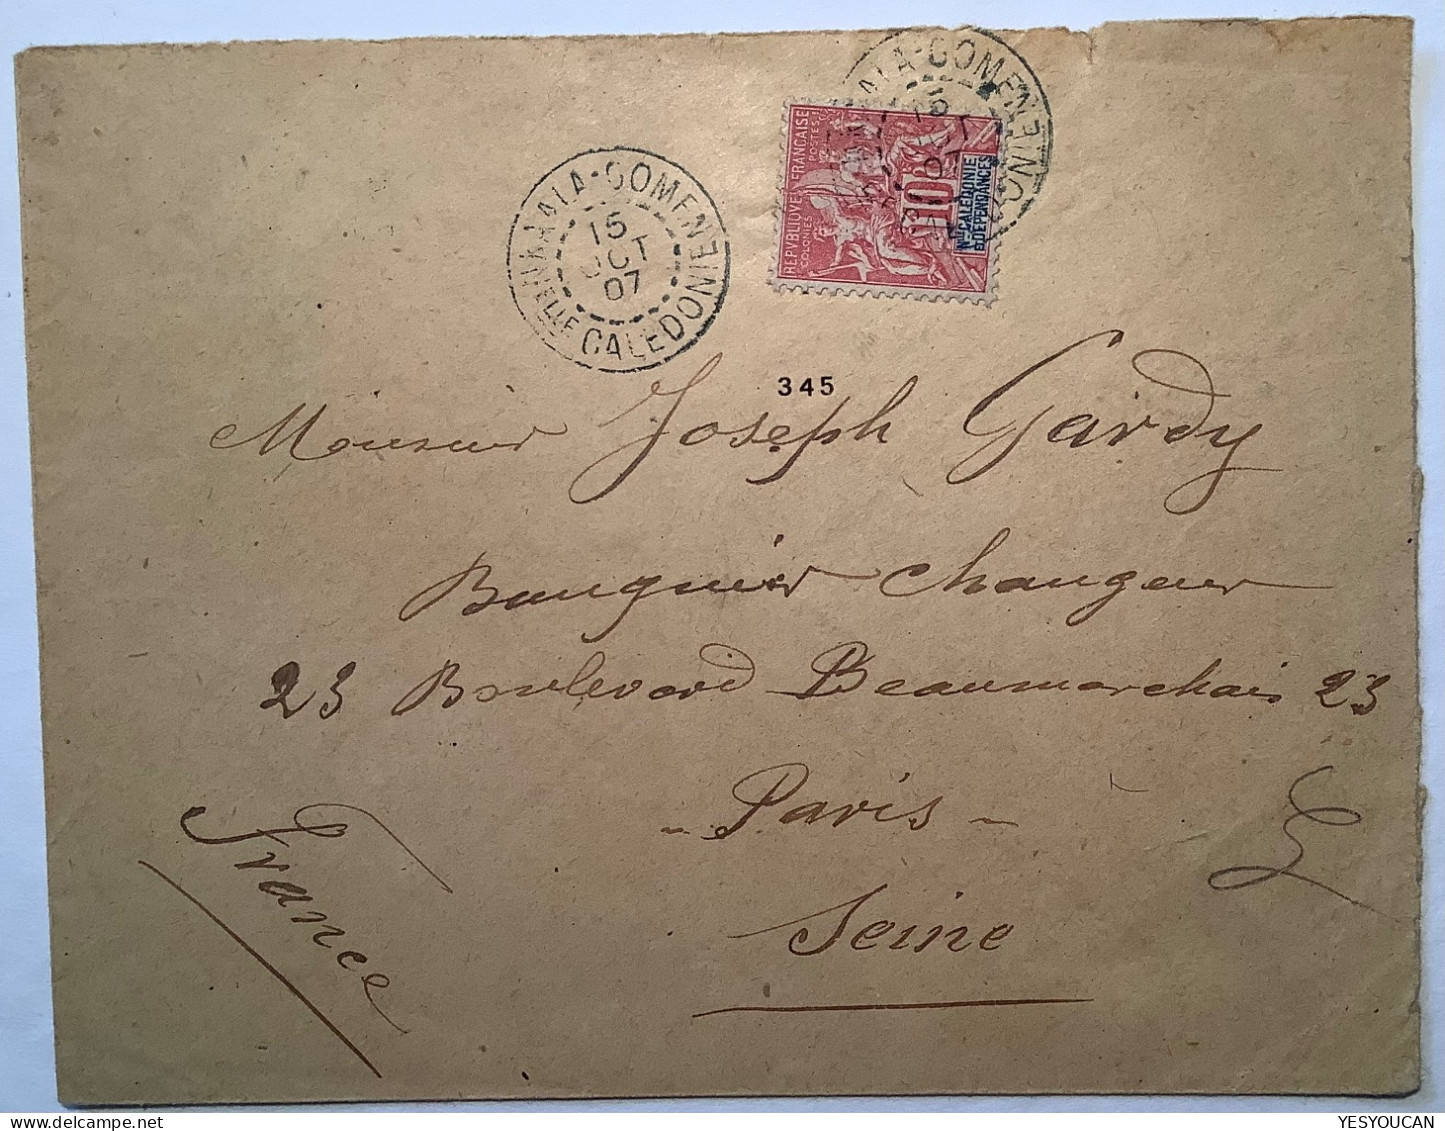 KAALA-GOMEN
15
OCT
07
Nelle CALEDONIE
REPVBLIQVE FRANÇAISE
COLONIES
POSTES
10
Nlle CALÉDONIE
ET DÉPENDANCES
345
Monsieur Joseph Gardy
Banquier Changeur
23 Boulevard Beaumarchais 23
- Paris -
Seine
France
YESYOUCAN